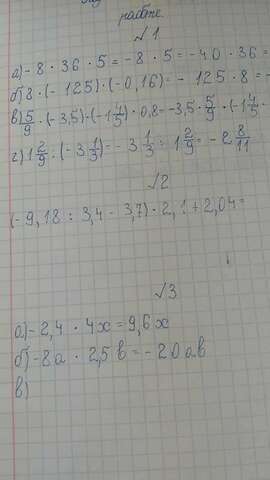 работе
№1
а) -8 · 36 · 5 = -8 · 5 = -40 · 36 =
б) 8 · (-125) · (-0,16) = - 125 · 8 = -
в) 5/9 · (-3,5) · (-1 4/5) · 0,8 = -3,5 · 5/9 · (-1 4/5 ·
г) 1 2/9 · (-3 1/3) = -3 1/3 : 1 2/9 = -2 8/11
№2
(-9,18 : 3,4 - 3,7) · 2,1 + 2,04 =
№3
а) -2,4 · 4x = 9,6x
б) -8a · 2,5b = -20ab
в)